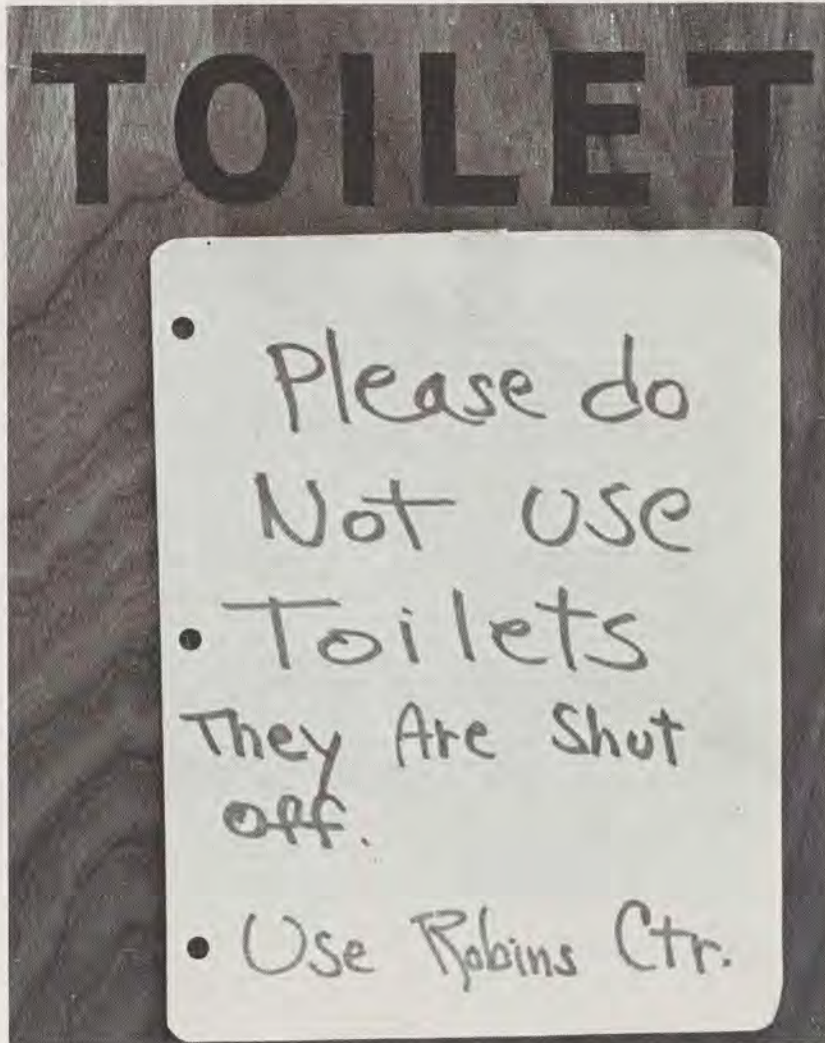 TOILET
Please do
Not use
Toilets
They Are Shut
off.
Use Robins Ctr.